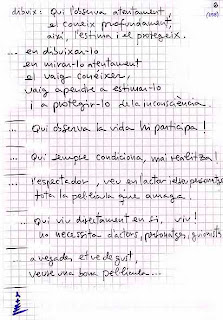 dibuix: Qui l'observa atentament,
el coneix profundament,
així, l'estima i el protegeix.
... en dibuixar-lo
en mirar-lo atentament
el vaig conèixer,
vaig apendre a estimar-lo
i a protegir-lo de la inconsciència.
... Qui observa la vida hi participa!
... Qui sempre condiciona, mai realitza!
... l'espectador, veu en l'actor i el seu personatge
tota la pel·lícula que amaga.
... Qui viu directament en si, viu!
no necessita d'actors, personatges, guionistes
a vegades, et ve de gust,
veure una bona pel·lícula...